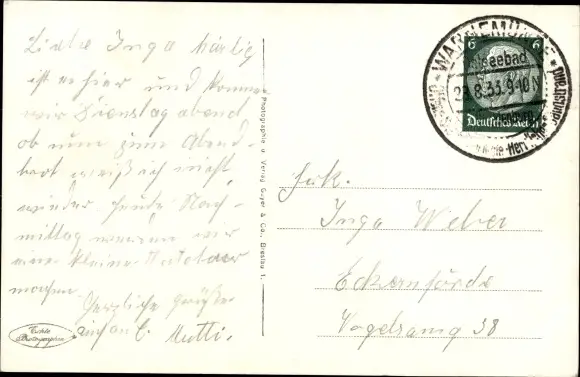 Liebe Inga härlig
ist es hier und kommen
wir Dienstag abend
ob nun zum Abend-
brot weiß ich nicht
wieder heute Nach-
mittag wir
eine kleine
machen
Herzliche Grüße
Mutti.
Echte
Photographie
Photographie u. Verlag Geyer & Co., Breslau 1.
WARNEMÜNDE
Ostseebad
28.8.33.9-10 N
6 6
Deutsches Reich
Frk.
Inga Weber
Eckernförde
Vogelsang 38